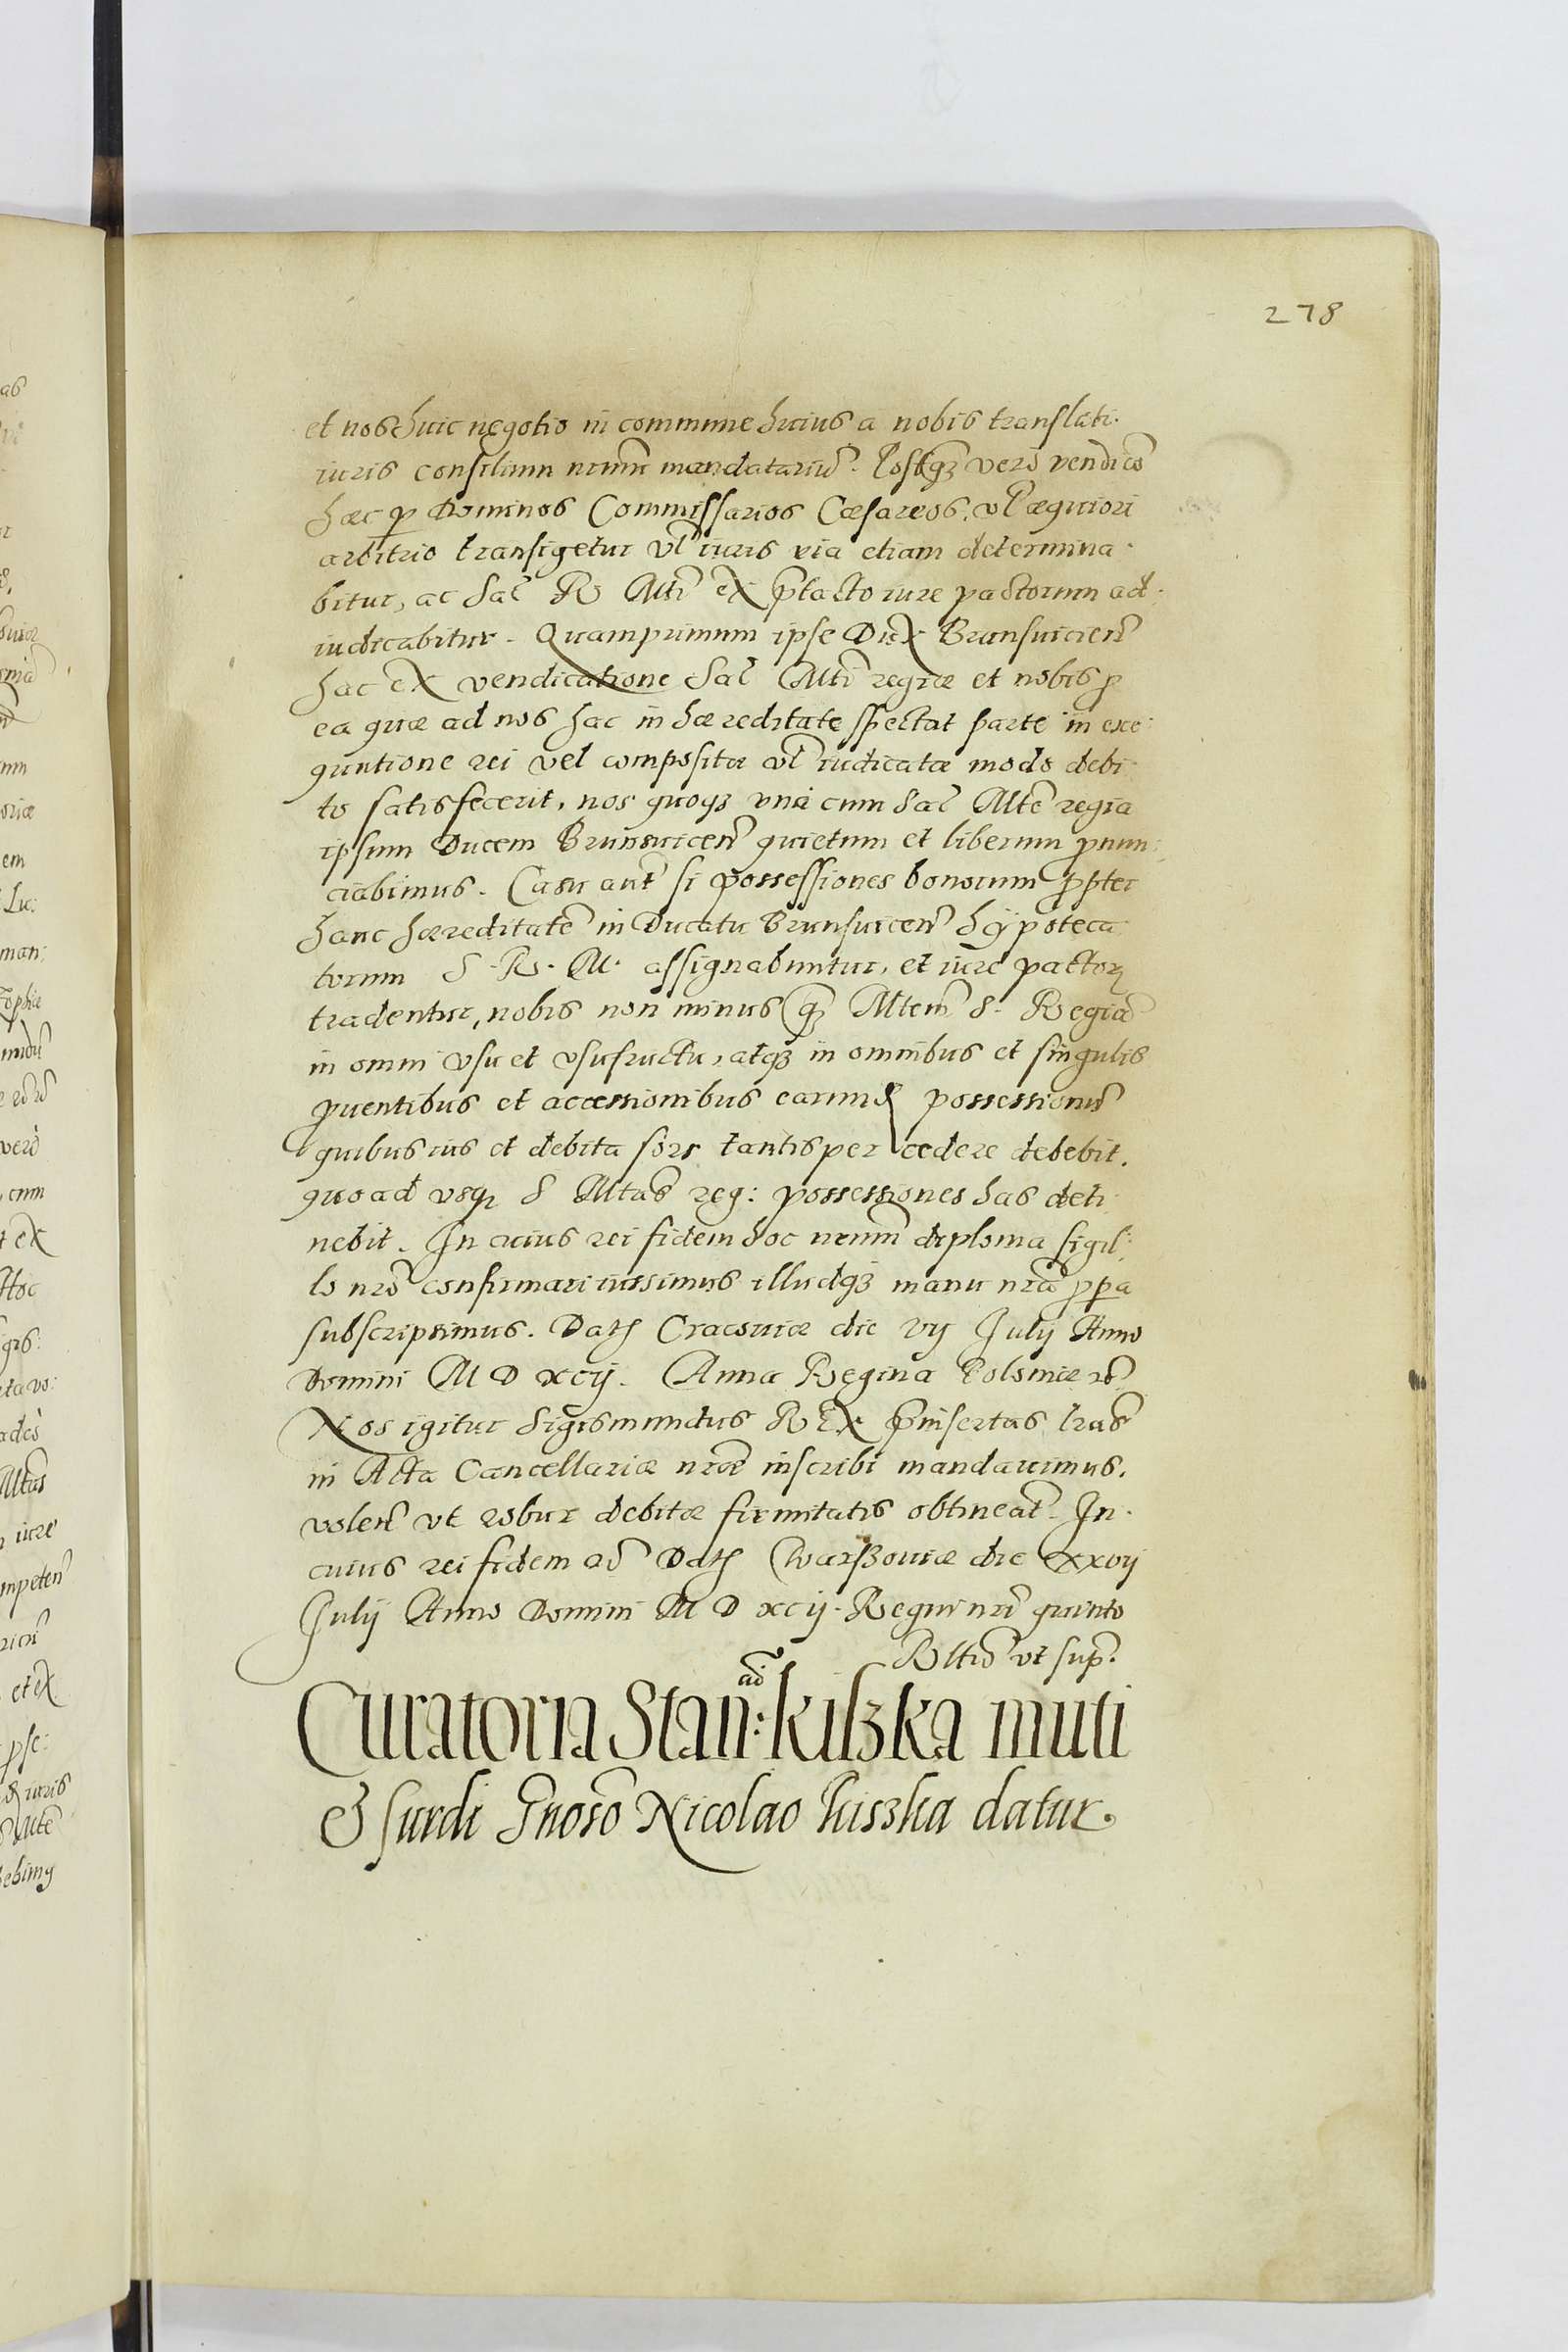 278
et nos huic negotio in commune huius a nobis translati
iuris consilium nrum̃ mandatariũ. Postq̃ꝫ verò vendicõ
hæc ꝑ Dominos Commissarios Cæsareos, vl̃ æquiori
arbitrio transigetur vl̃ iuris via etiam determina:
bitur, ac Sac̃ R Alti͂ ex p̃tacto iure pactorum ad:
iudicabitur. Quamprimum ipse Dux Brunsuicen͂
hac ex vendicatione Sac̃ Alti͂ regiæ et nobis ꝓ
ea quæ ad nos hac in hæreditate spectat parte in exe:
quutione rei vel compositæ vl̃ iudicatæ modo debi:
to satisfecerit, nos quoqꝫ vnà cum Sac̃ Alte͂ regia
ipsum Ducem Brunsuicen͂ quietum et liberum ꝓnun:
ciabimus. Casu aut͂ si possessiones bonorum ꝓpter
hanc hæreditate͂ in Ducatu Brunsuicen͂ hÿpoteca:
torum S. R. M. assignabuntur, et iure pactoꝝ
tradentur, nobis non minus q̃ꝫ Altem͂ S. Regiã
in omni vsu et vsufructu, atqꝫ in omnibus et singulis
ꝓuentibus et accessionibus earundẽ possessionũ
quibus ius et debita sors tantisper cedere debebit.
quoad vsqꝫ S Altas͂ reg: possessiones has deti:
nebit. In cuius rei fidem hoc nrum̃ diploma sigil:
lo nrõ confirmari iussimus illudqꝫ manu nrã ꝓpa
subscripsimus. Datꝫ Cracouiæ die vij Julij Anno
Domini M D xcij. Anna Regina Poloniæ rẽ
Nos igitur Sigismundus Rex p̃insertas lras͂
in Acta Cancellariæ nræ͂ inscribi mandauimus.
volen͂ vt robur debitæ firmitatis obtineãt. In
cuius rei fidem ad͂ Datꝫ Warßouiæ die xxvij
Julij Anno Domini M D xcij. Regni nrĩ quinto
Rltiõ vt sup͂.
Curatoria Stan: ad kißka muti
& surdi Gnoso͂ Nicolao Kiszka datur.